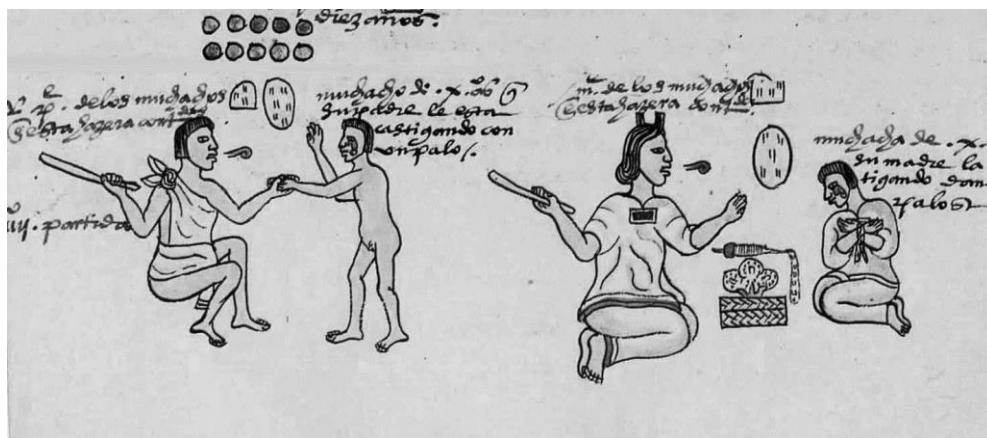 diez años.
p.e de los muchachos
q̃ esta hazera contdos
muchacho de .x. años q̃
su padre le esta
castigando con
un palo /.
partida
m.e de los muchachos
q̃ esta hazera contdos
muchacha de .x.
su madre la
tigando con
palos